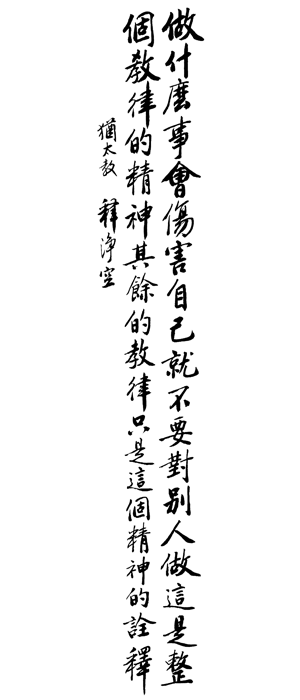 做什麼事會傷害自己就不要對別人做這是整
個教律的精神其餘的教律只是這個精神的詮釋
猶太教 釋淨空